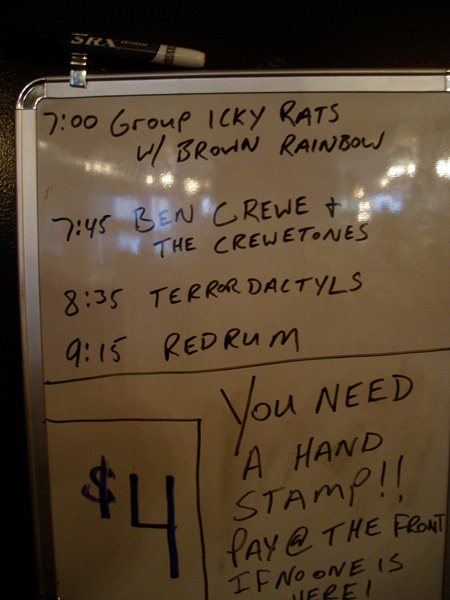 SRX
7:00 Group ICKY RATS
W/ BROWN RAINBOW
7:45 BEN CREWE +
THE CREWETONES
8:35 TERRORDACTYLS
9:15 REDRUM
$4
YOU NEED
A HAND
STAMP!!
PAY @ THE FRONT
IF NO ONE IS
HERE!